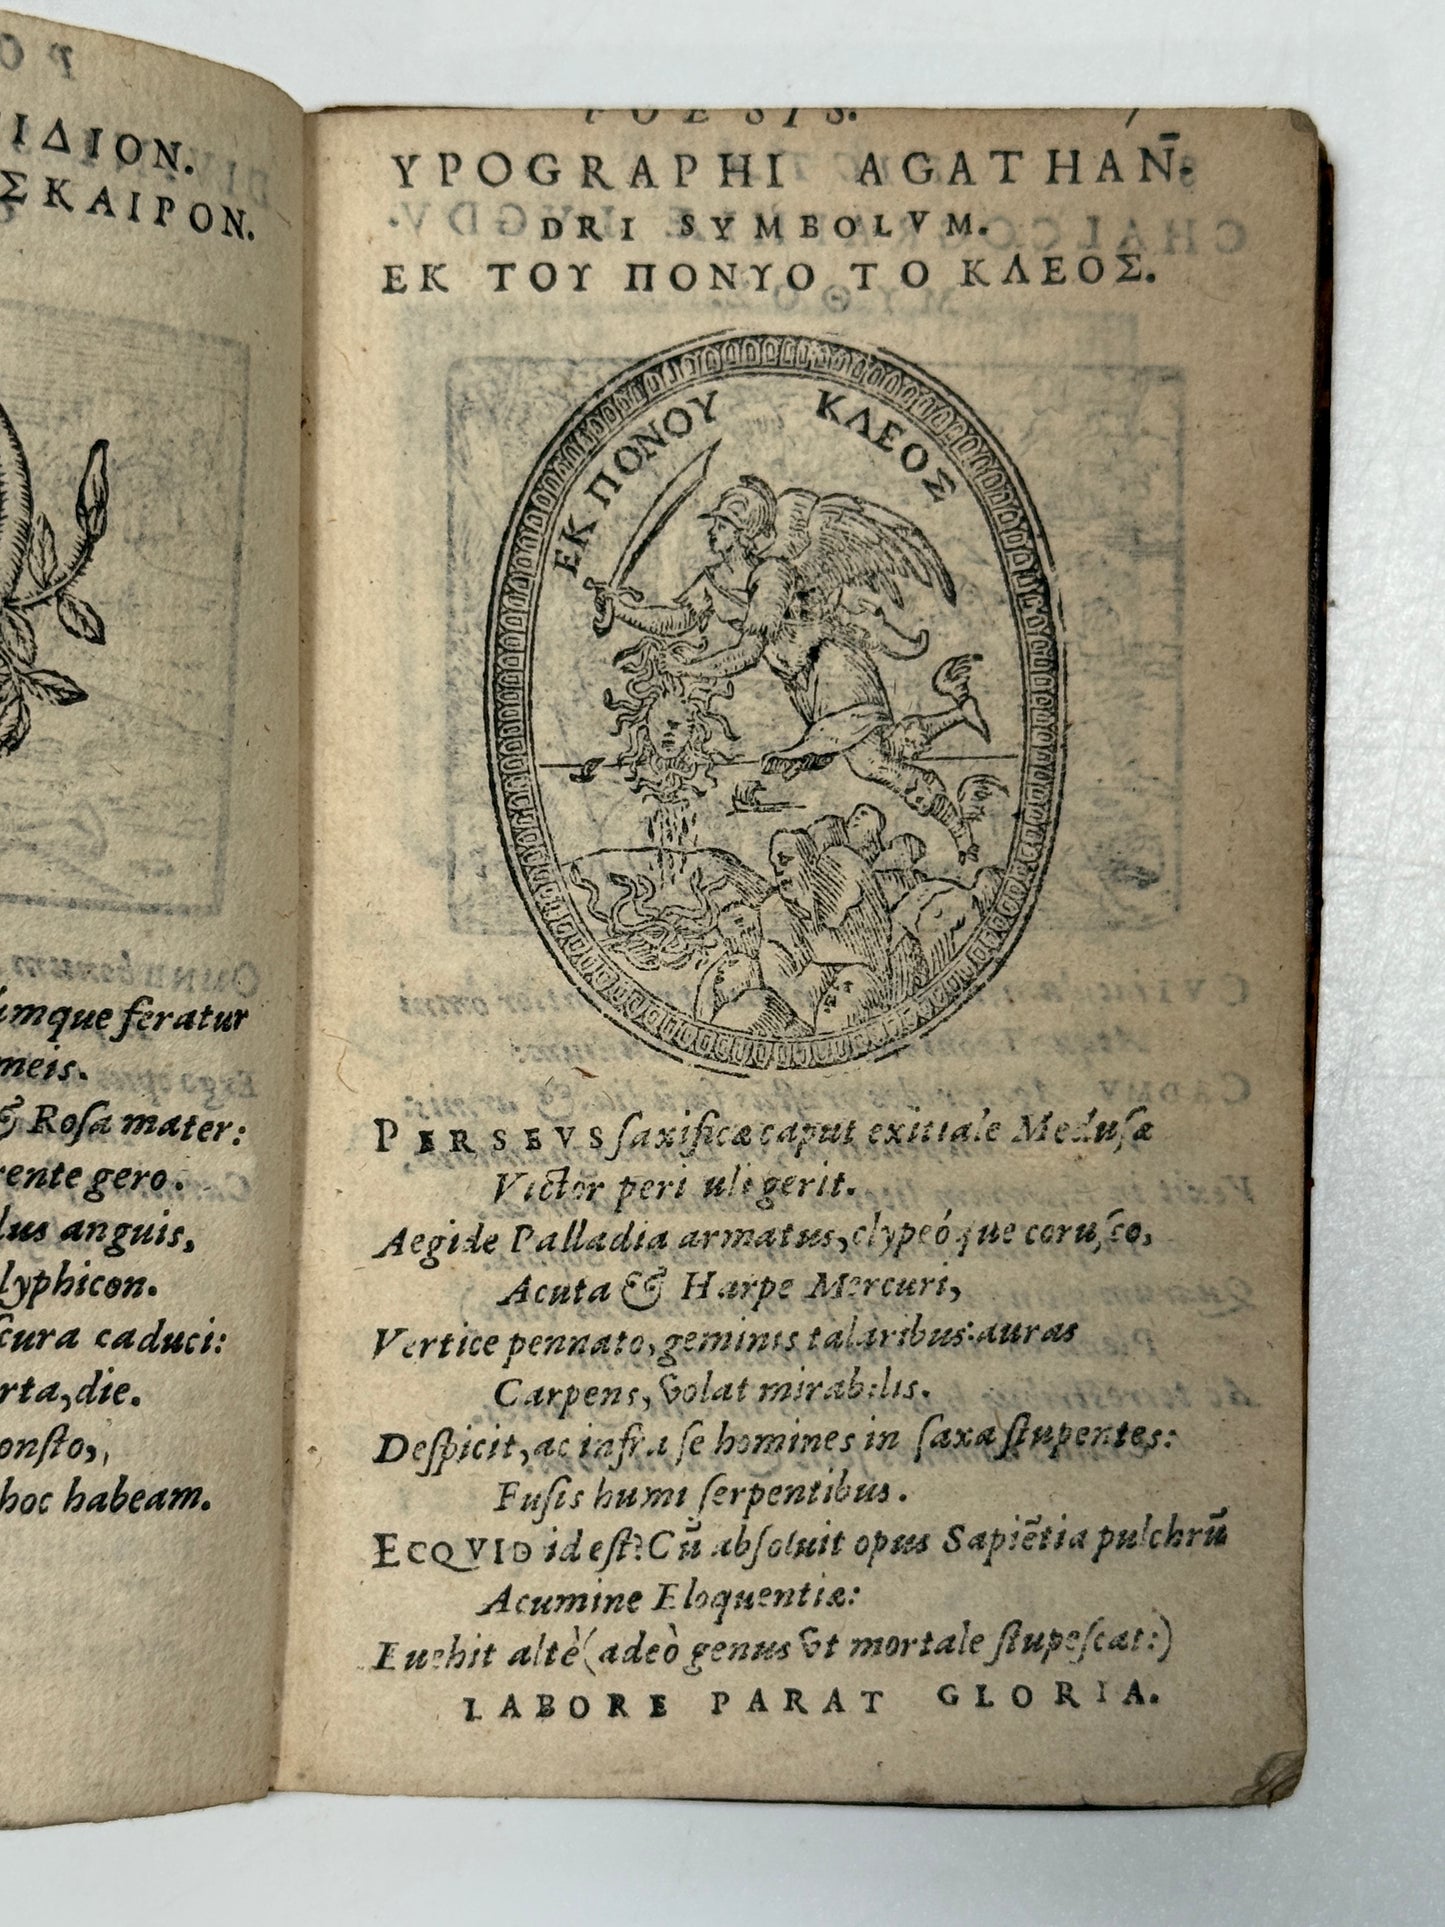 ΙΔΙΟΝ.
ΣΚΑΙΡΟΝ.
umque feratur
meis.
& Roſa mater:
rente gero.
lus anguis,
lyphicon.
ſcura caduci:
rta, die.
onſto,
hoc habeam.
POESIS. 7
YPOGRAPHI AGATHAN̄-
DRI SYMBOLVM.
ΕΚ ΤΟΥ ΠΟΝΥΟ ΤΟ ΚΛΕΟΣ.
ΕΚ ΠΟΝΟΥ ΚΛΕΟΣ
PERSEVS ſaxificæ caput exitiale Meduſæ
Victor peri uli gerit.
Aegide Palladia armatus, clypeóque coruſco,
Acuta & Harpe Mercuri,
Vertice pennato, geminis talaribus: auras
Carpens, volat mirabilis.
Deſpicit, ac infra ſe homines in ſaxa ſtupentes:
Fuſis humi ſerpentibus.
ECQVID id eſt? Cũ abſoluit opus Sapiẽtia pulchrũ
Acumine Eloquentiæ:
Euehit altè (adeò genus vt mortale ſtupeſcat:)
LABORE PARAT GLORIA.